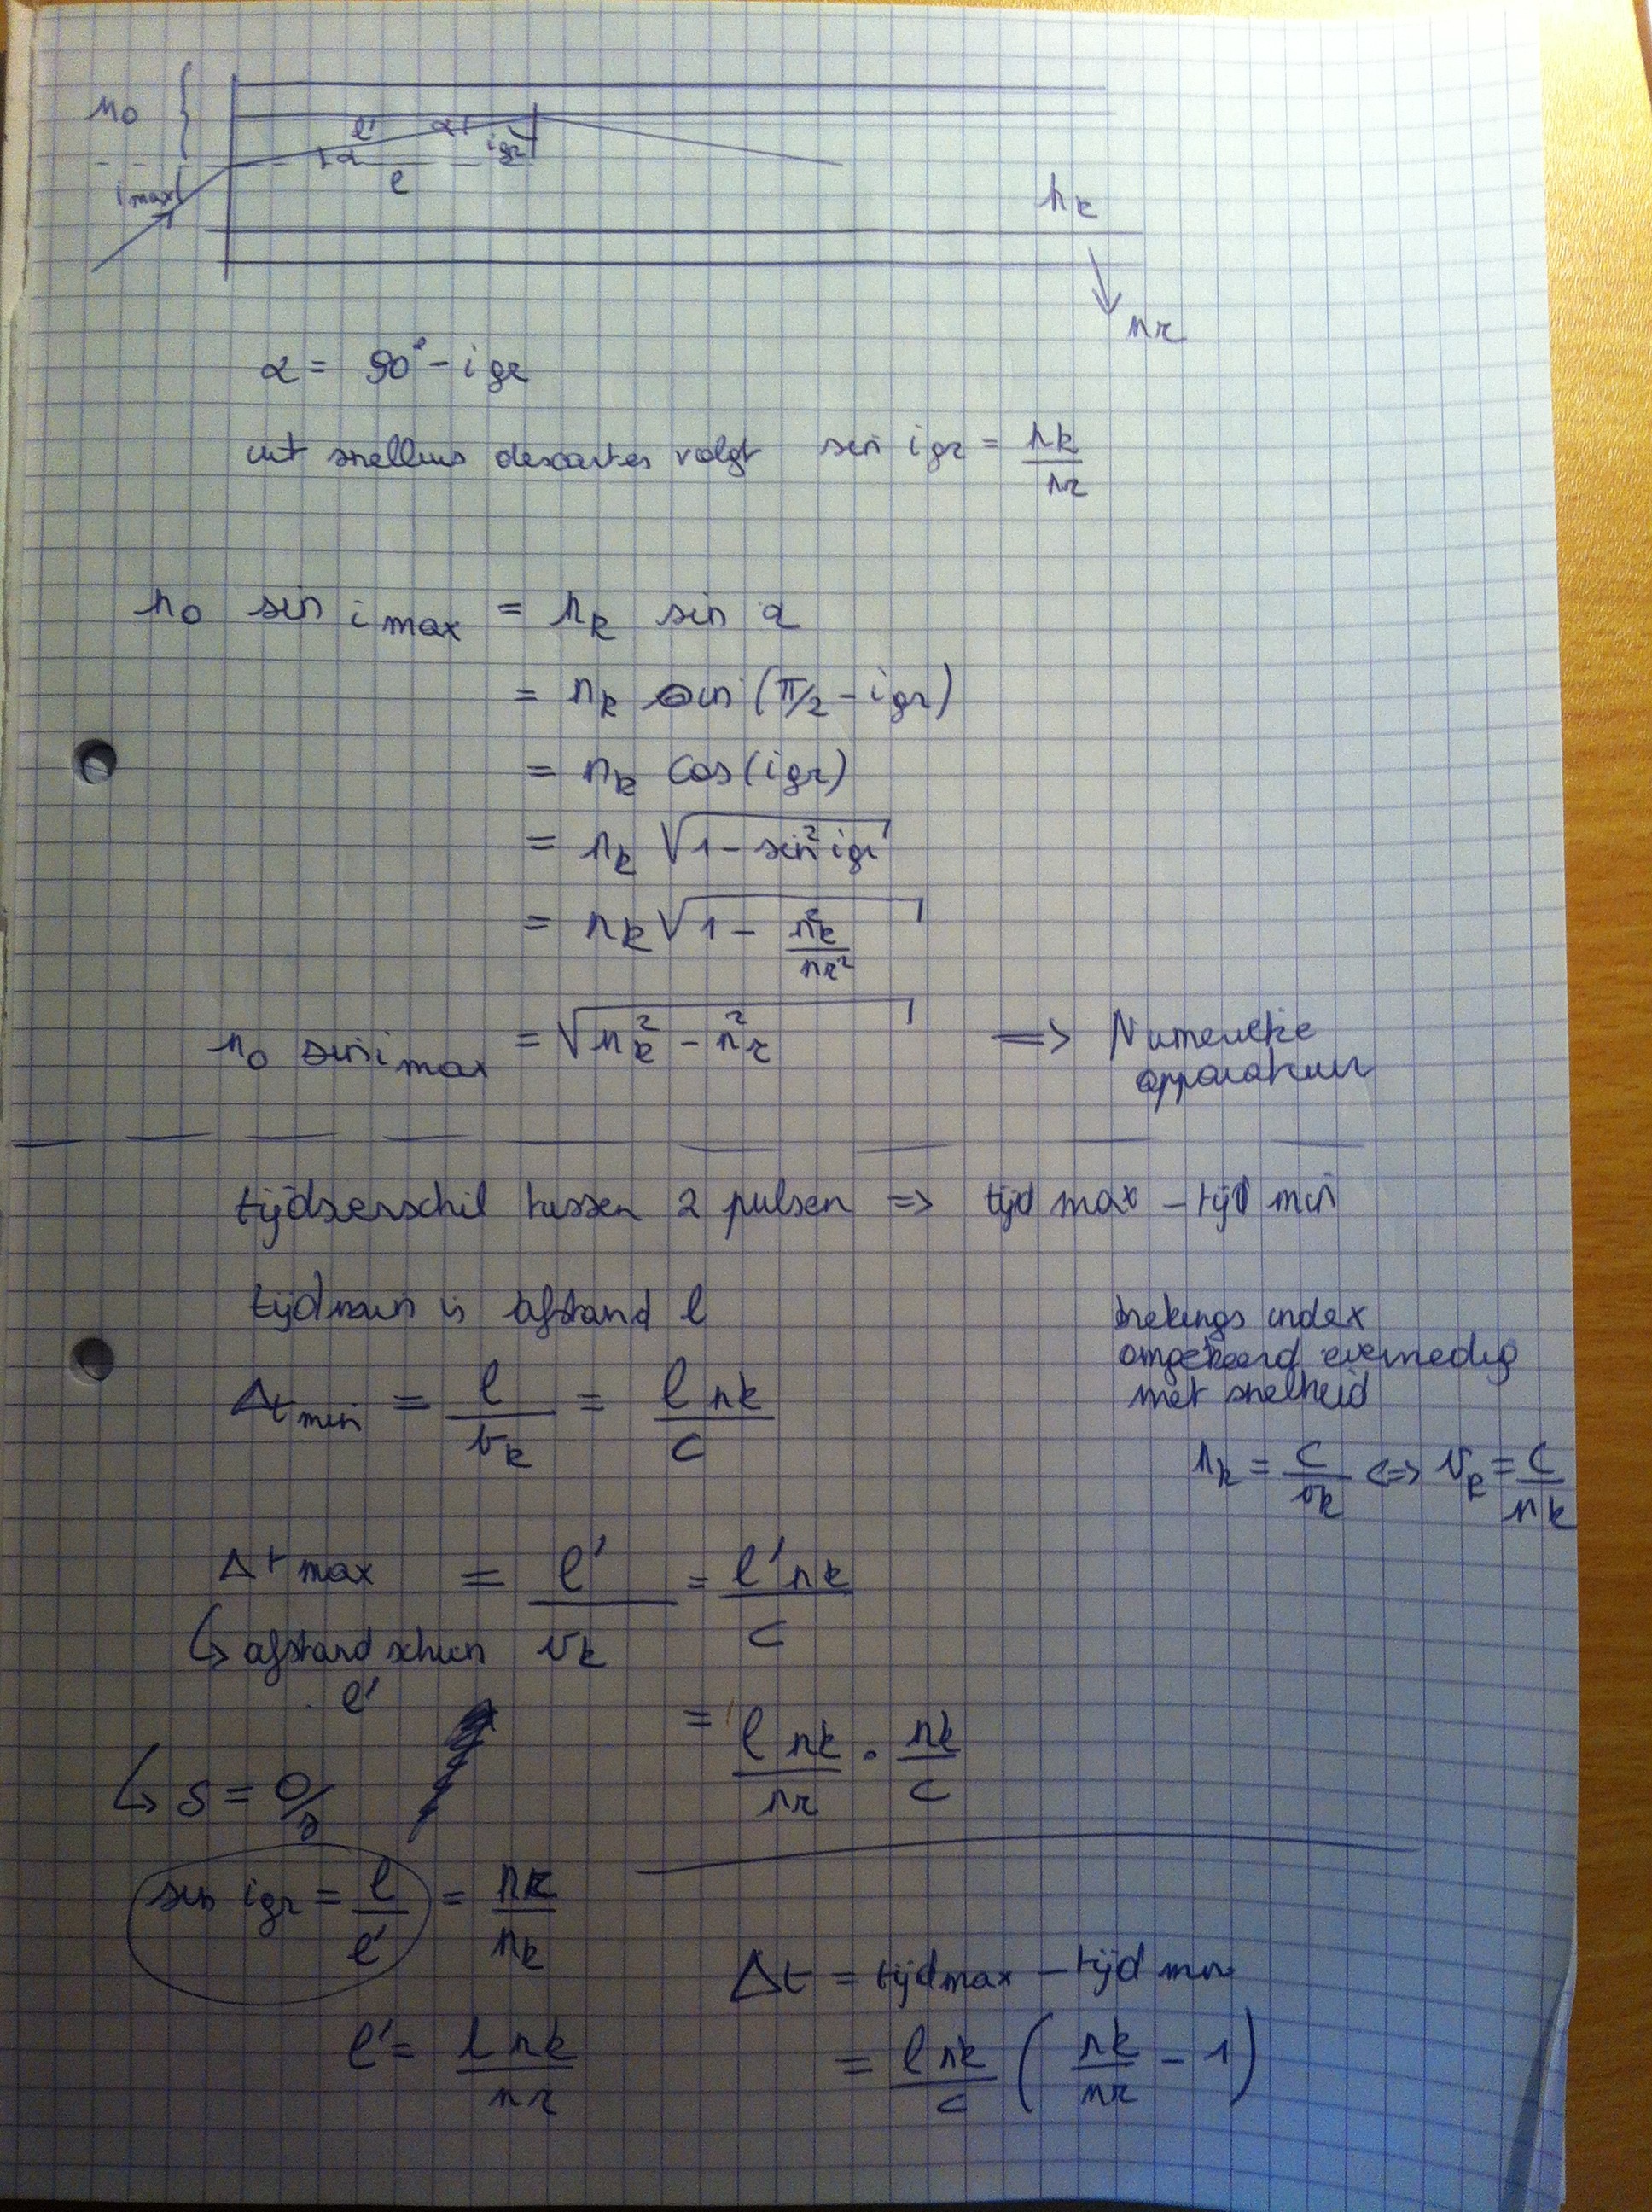 n₀
l'
α
igr
α
l
i max
nk
nr
α = 90° - i gr
uit snellius descartes volgt sin i gr = nk / nr
n₀ sin i max = nk sin α
= nk sin (π/2 - igr)
= nk cos(igr)
= nk √(1 - sin² igr)
= nk √(1 - nk² / nr²)
n₀ sin i max = √(nk² - nr²) => Numerieke
apparatuur
tijdserschil tussen 2 pulsen => tijd max - tijd min
tijdmin is afstand l
brekings index
omgekeerd evenredig
met snelheid
Δt min = l / vk = l nk / c
nk = c / vk <=> vk = c / nk
Δt max = l' / vk = l' nk / c
↳ afstand schuin
l'
= l nk / nr · nk / c
↳ s = o/s
sin igr = l / l' = nk / nk
Δt = tijdmax - tijd min
l' = l nk / nr
= l nk / c ( nk / nr - 1 )